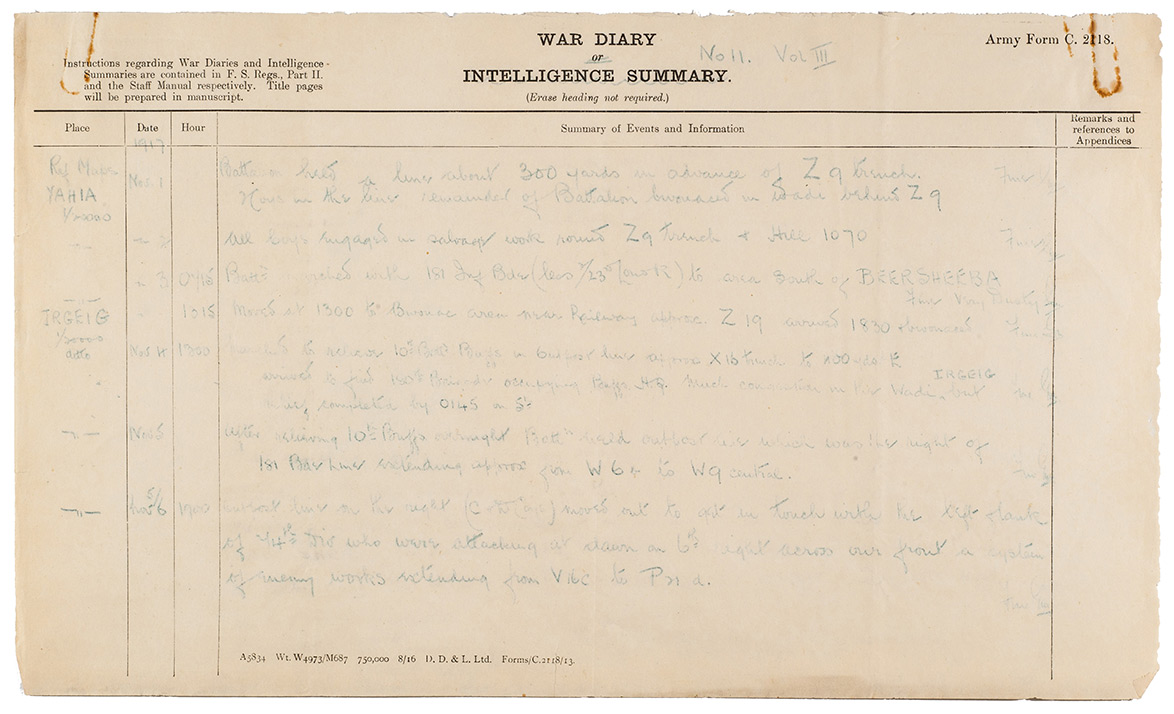 WAR DIARY
or
INTELLIGENCE SUMMARY.
(Erase heading not required.)
No 11. Vol III
Army Form C. 2118.
Instructions regarding War Diaries and Intelligence
Summaries are contained in F. S. Regs., Part II.
and the Staff Manual respectively. Title pages
will be prepared in manuscript.
Place Date Hour Summary of Events and Information
Remarks and
references to
Appendices
1917
Ref Maps
YAHIA
1/20000
Nov. 1 Battalion held a line about 300 yards in advance of Z 9 trench. Fine
in the line remainder of Battalion bivouaced in wadi behind Z 9
" 2 All Coys engaged in salvage work round Z 9 trench & Hill 1070
" 3 0715 Battn marched with 181 Inf Bde (less 2/23 ) to area South of BEERSHEEBA
Fine Very Dusty
IRGEIG
1/20000
ditto
1015 Moved at 1300 to Bivouac area near Railway approx. Z 19 arrived 1830 & bivouaced
Nov 4 1300 to relieve 10th Battn Buffs in outpost line approx X 16 trench to
arrived to find occupying Buffs H.Q. Much in the Wadi IRGEIG but
completed by 0145 on 5th
" Nov 5 After relieving 10th Buffs overnight Battn held outpost line which was the right of
181 Bde Line extending approx from W 6 to W 9 central.
" Nov 5/6 1900 outpost line on the right (C & D Coys) moved out to get in touch with the left flank
of 74th Div who were attacking at dawn on 6th right across our front a system
of enemy works extending from V 16 c to P 21 d.
A5834 Wt. W4973/M687 750,000 8/16 D. D. & L. Ltd. Forms/C.2118/13.